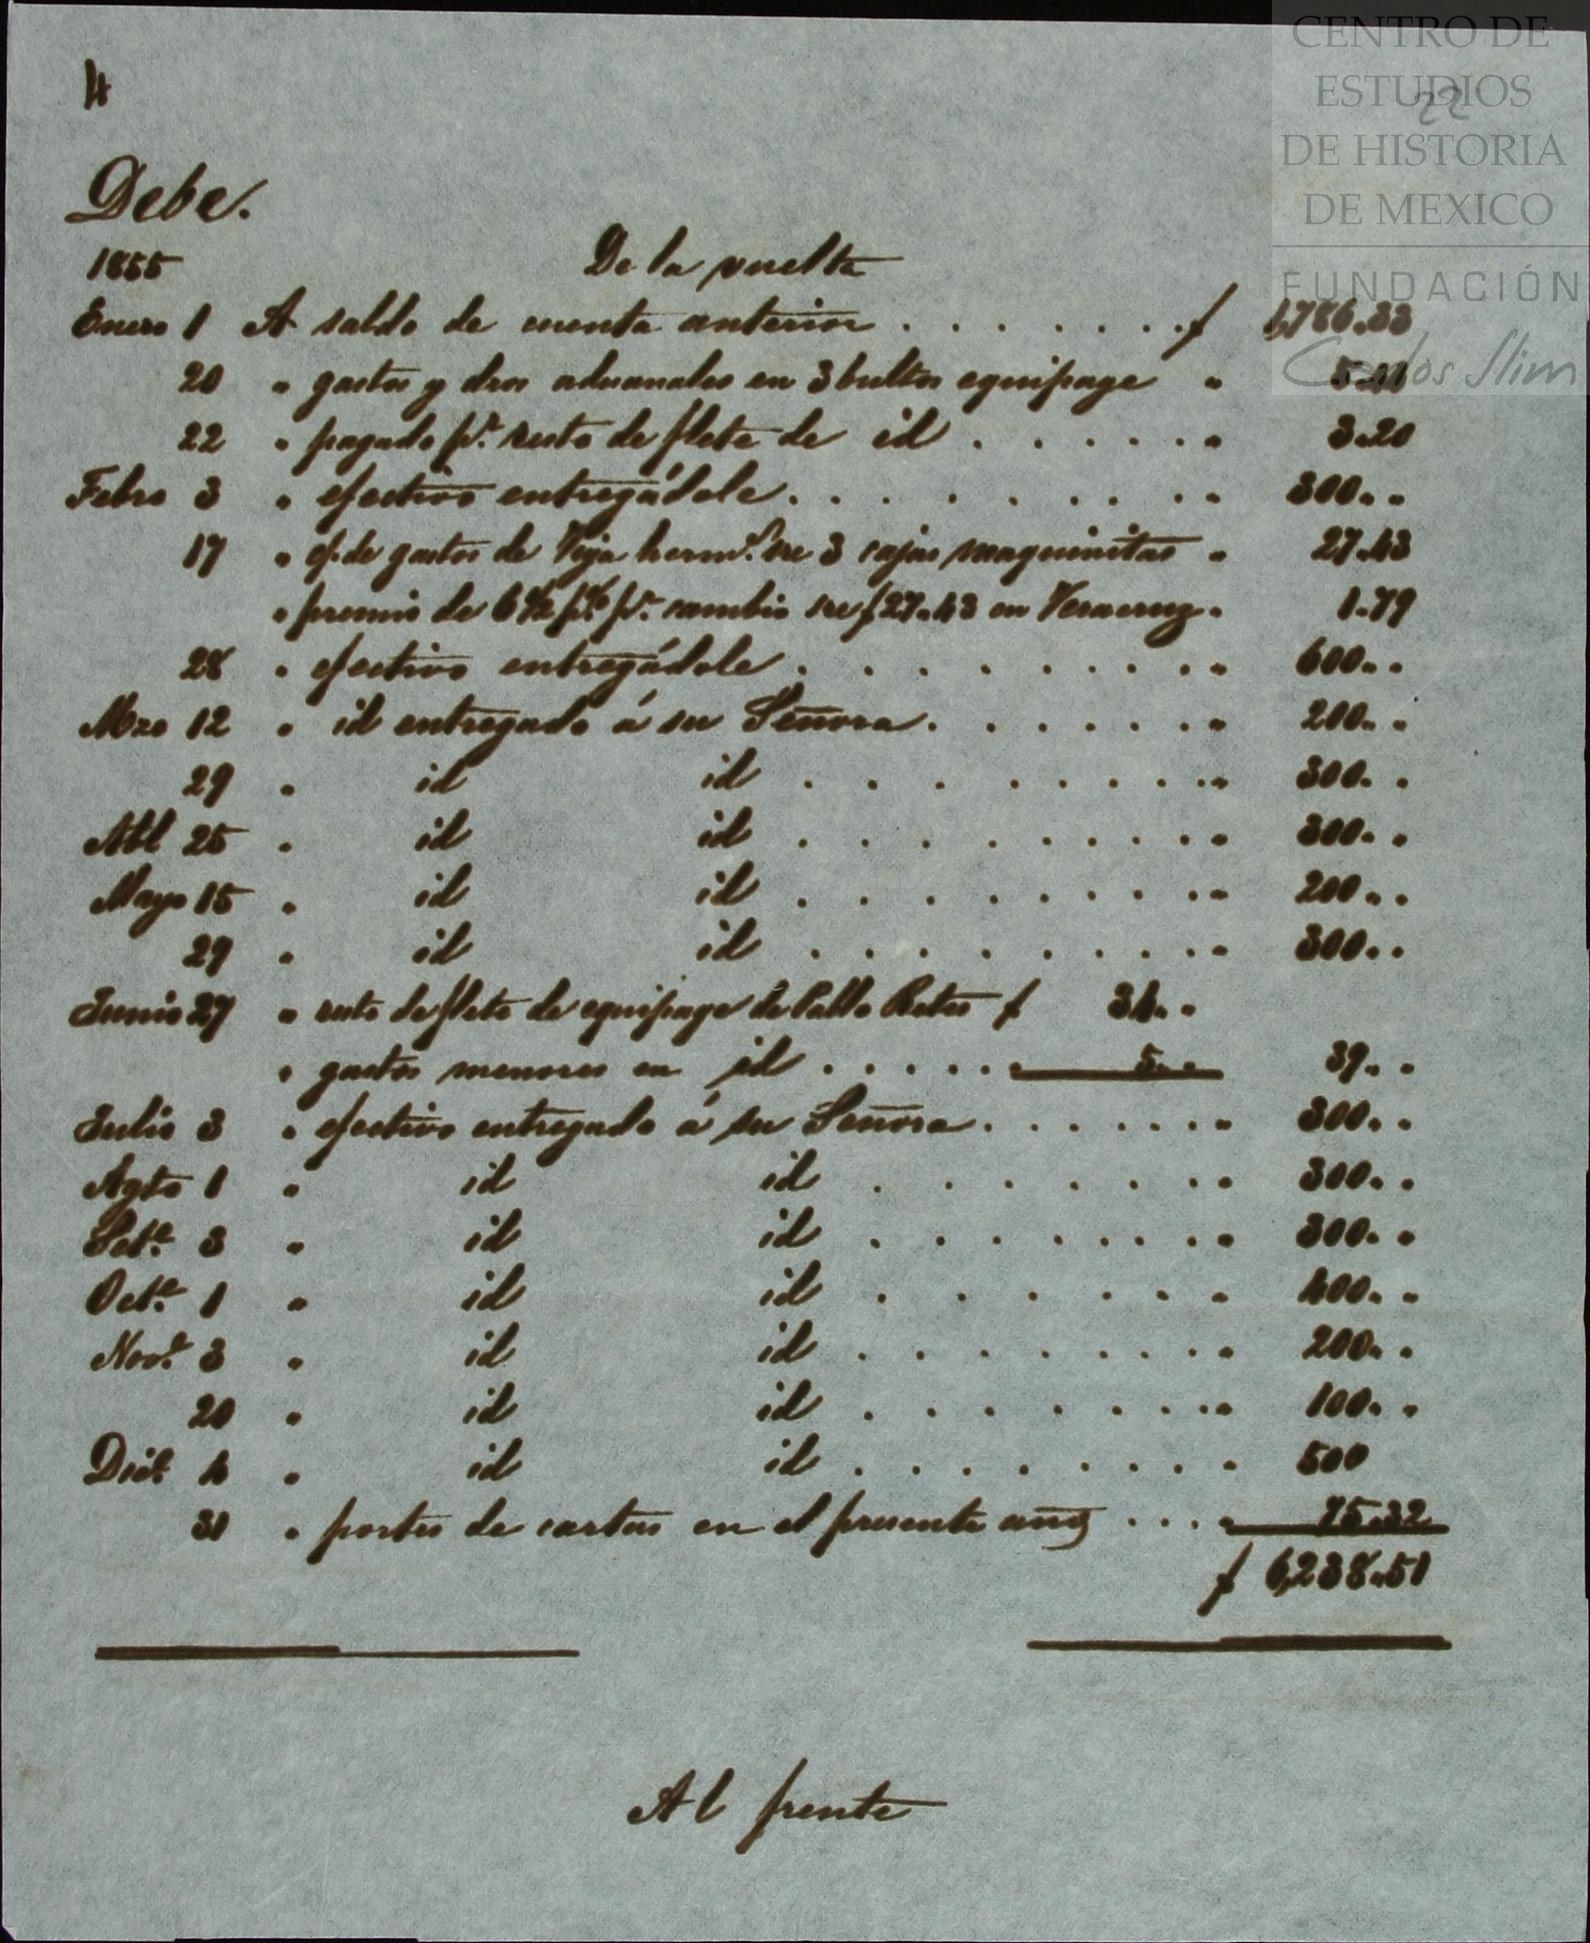 4
22
Debe.
1855 De la vuelta
Enero 1 A saldo de cuenta anterior . . . . . . . $ 1,786.33
20 " gastos y dros aduanales en 3 bultos equipage " 5.44
22 " pagado pr. resto de flete de id . . . . . . " 3.20
Febro 3 " efectivo entregádole . . . . . . . . " 300 " "
17 " de gastos de Veja herms. sre 3 cajas maquinitas " 27.43
" premio de 6 1/2 p% pr. cambio sre $27.43 en Veracruz " 1.79
28 " efectivo entregádole . . . . . . . . " 600 " "
Mzo 12 " id entregado á su Señora . . . . . . " 200 " "
29 " id id . . . . . . . . " 300 " "
Abl 25 " id id . . . . . . . . " 300 " "
Mayo 15 " id id . . . . . . . . " 200 " "
29 " id id . . . . . . . . " 300 " "
Junio 27 " resto de flete de equipage de Pablo Retes $ 34 " "
" gastos menores en id . . . . . " 5 " " 39 " "
Julio 3 " efectivo entregado á su Señora . . . . . . " 300 " "
Agto 1 " id id . . . . . . . " 300 " "
Sete. 3 " id id . . . . . . . " 300 " "
Octe. 1 " id id . . . . . . . " 400 " "
Nove. 3 " id id . . . . . . . " 200 " "
20 " id id . . . . . . . " 100 " "
Dice. 4 " id id . . . . . . . " 500
31 " portes de cartas en el presente año . . . " 75.32
$ 6,238.51
Al frente
CENTRO DE
ESTUDIOS
DE HISTORIA
DE MEXICO
FUNDACIÓN
Carlos Slim